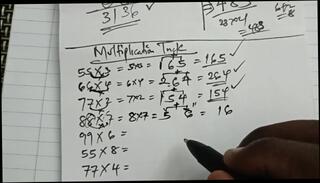 3136
483
23x21
483
Multiplication Trick
55x3 = 5x3 = 165 = 165
66x4 = 6x4 = 264 = 264
77x2 = 7x2 = 154 = 154
88x7 = 8x7 = 5 6 = 16
99x6 =
55x8 =
77x4 =